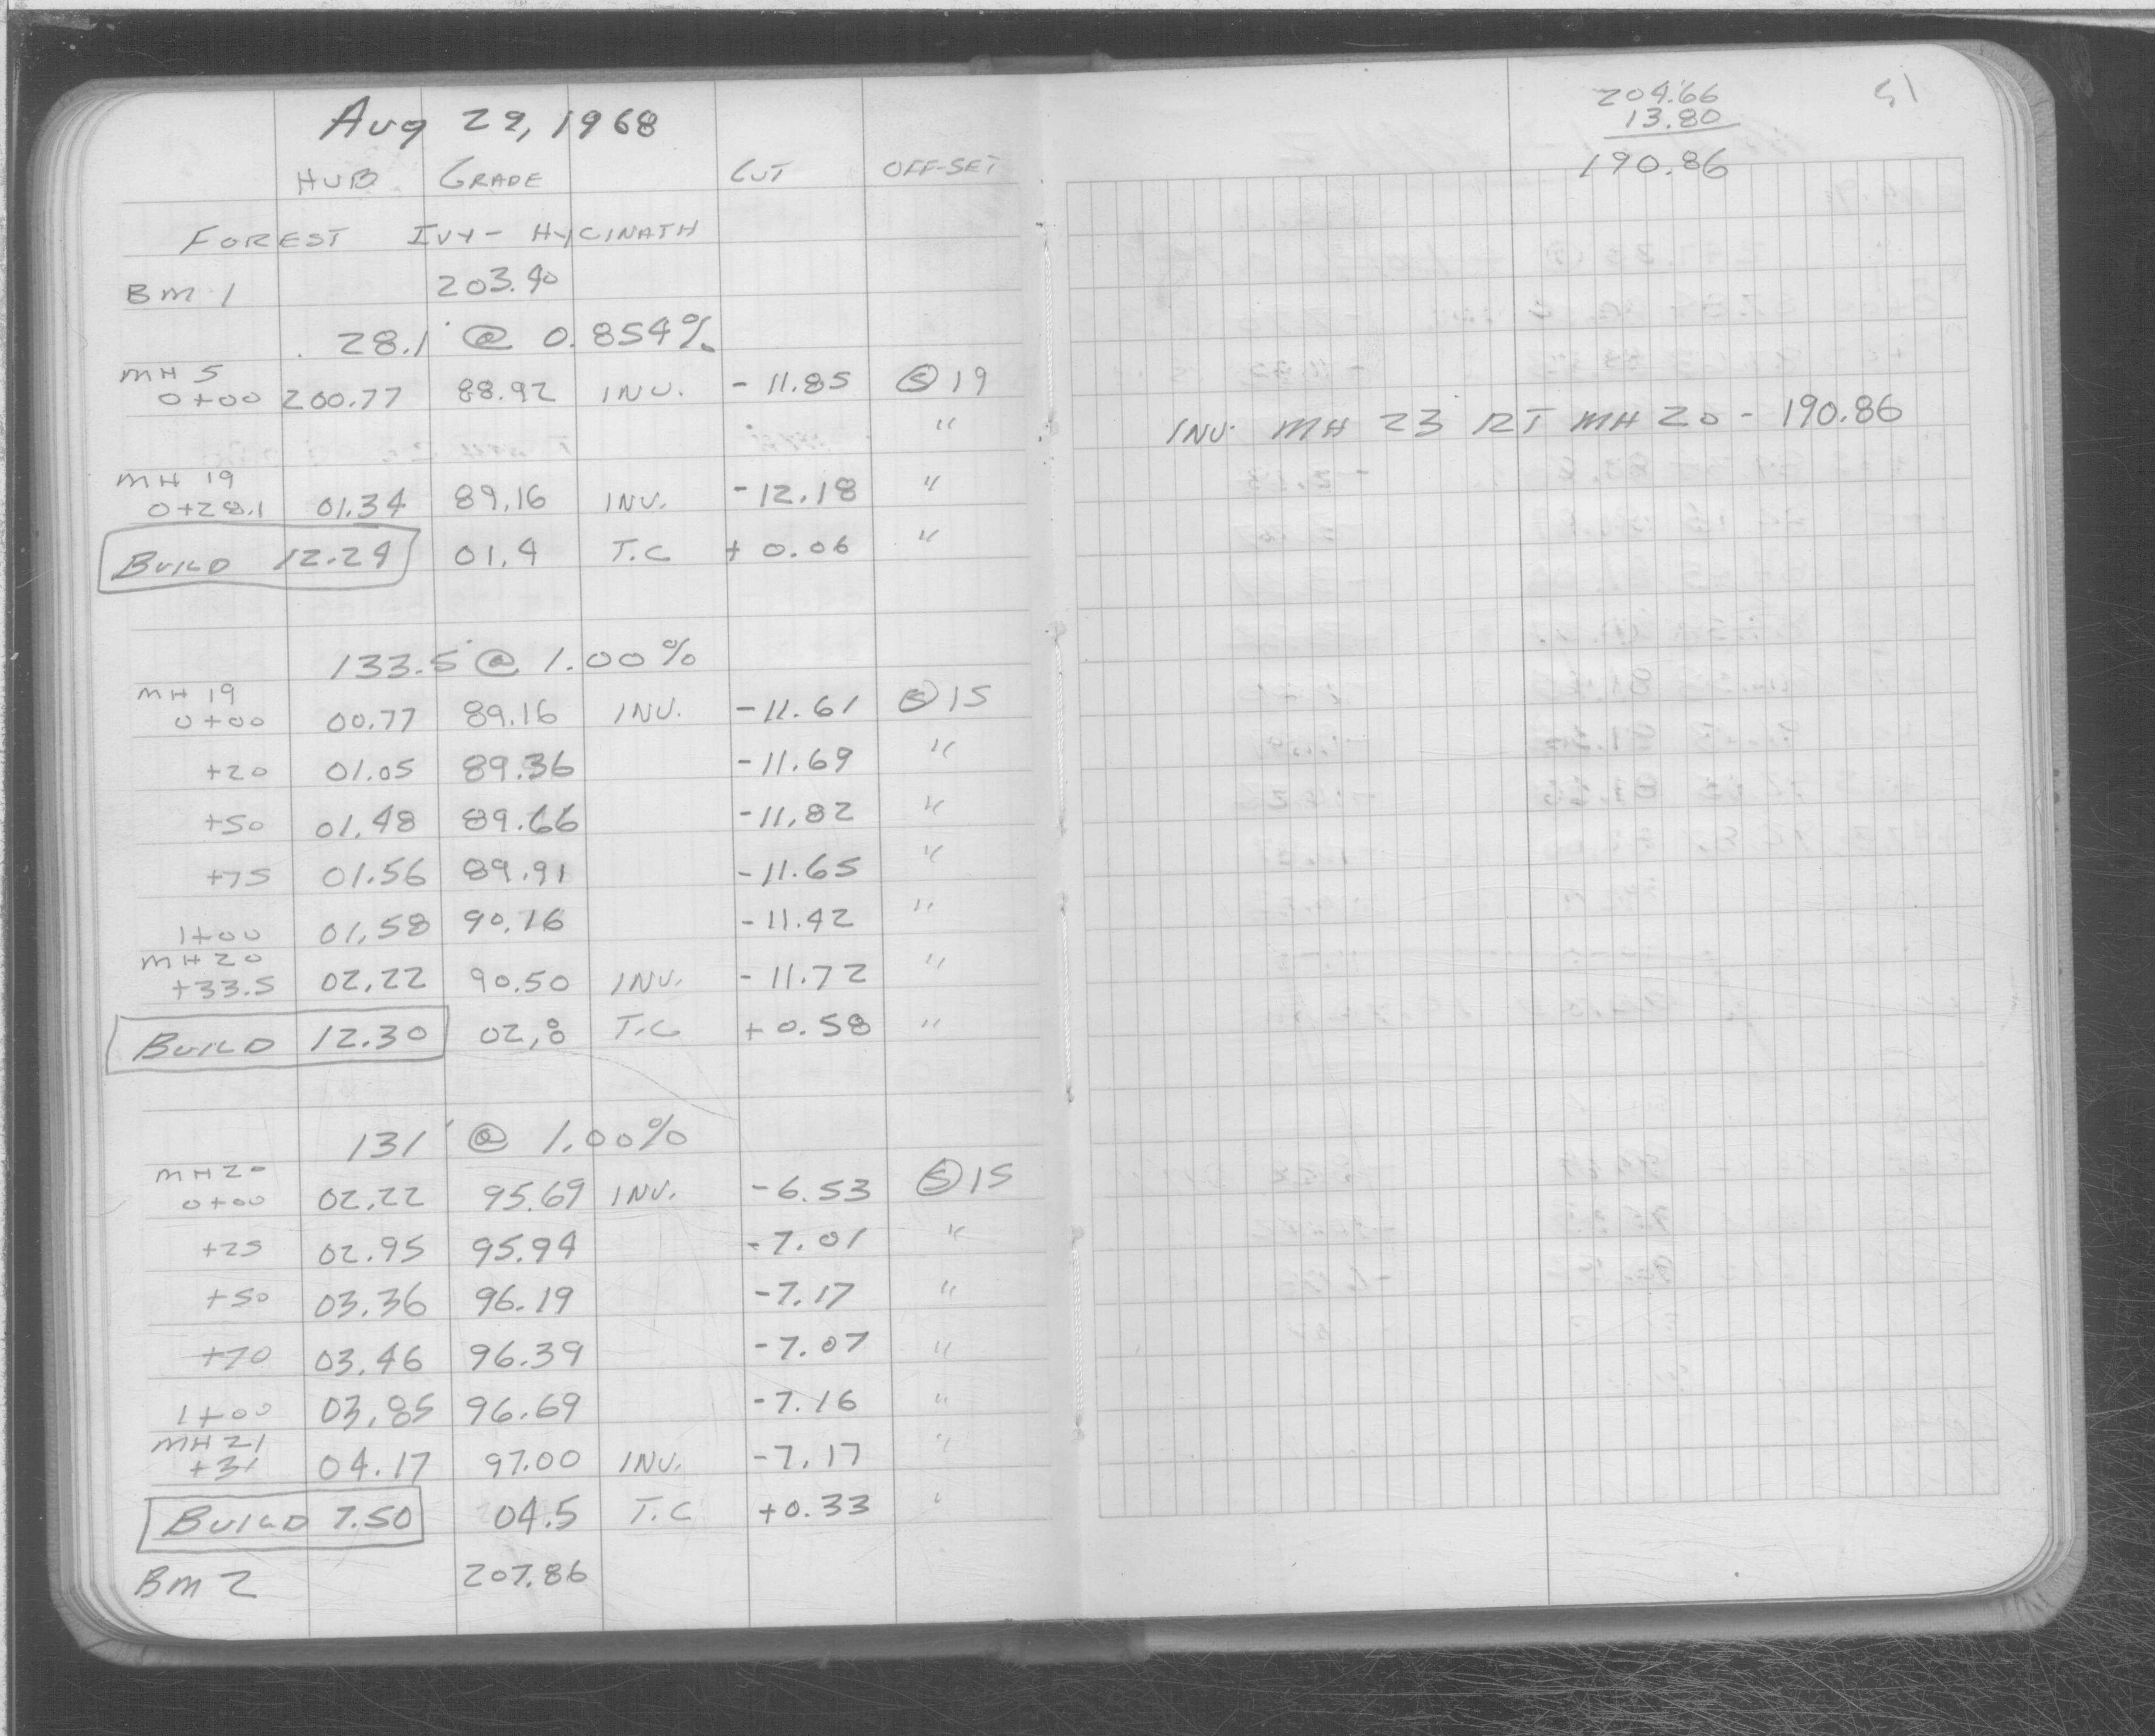 Aug 29, 1968
HUB GRADE CUT OFF-SET
FOREST IVY - HYCINATH
BM 1 203.40
28.1' @ 0.854%
MH 5
0+00 200.77 88.92 INV. - 11.85 Ⓢ 19
"
MH 19
0+28.1 01.34 89.16 INV. - 12.18 "
BUILD 12.24 01.4 T.C + 0.06 "
133.5' @ 1.00%
MH 19
0+00 00.77 89.16 INV. - 11.61 Ⓢ 15
+20 01.05 89.36 - 11.69 "
+50 01.48 89.66 - 11.82 "
+75 01.56 89.91 - 11.65 "
1+00 01.58 90.16 - 11.42 "
MH 20
+33.5 02.22 90.50 INV. - 11.72 "
BUILD 12.30 02.8 T.C + 0.58 "
131' @ 1.00%
MH 20
0+00 02.22 95.69 INV. - 6.53 Ⓢ 15
+25 02.95 95.94 - 7.01 "
+50 03.36 96.19 - 7.17 "
+70 03.46 96.39 - 7.07 "
1+00 03.85 96.69 - 7.16 "
MH 21
+31 04.17 97.00 INV. - 7.17 "
BUILD 7.50 04.5 T.C + 0.33 "
BM 2 207.86
204.66
13.80
190.86
51
INV. MH 23 RT MH 20 - 190.86